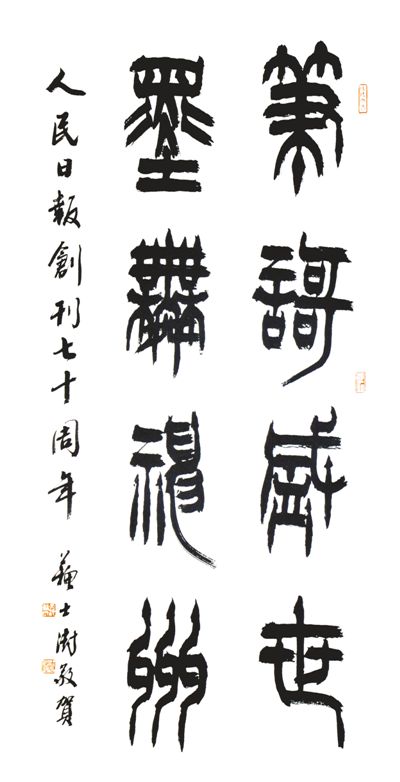 筆訶盛世
墨舞神州
人民日報創刊七十周年 蘇士澍敬賀